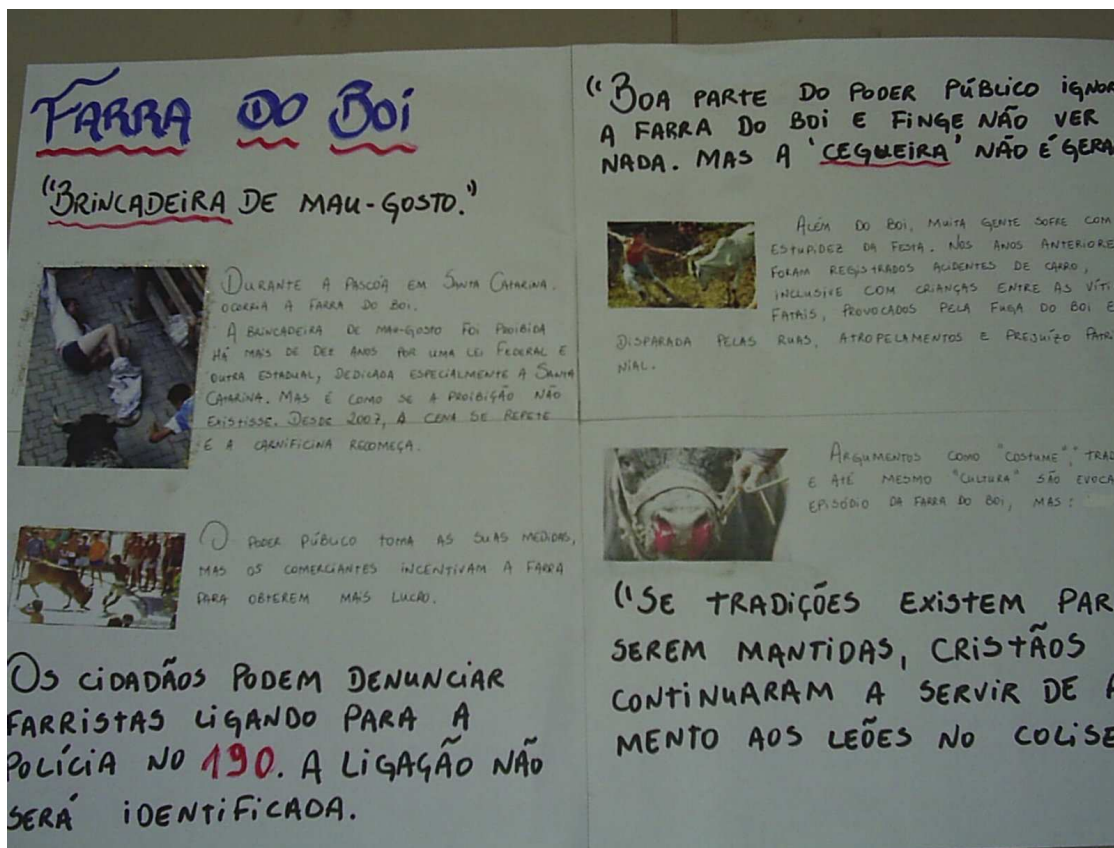 FARRA DO BOI
"BRINCADEIRA DE MAU-GOSTO."
DURANTE A PASCOA EM SANTA CATARINA.
OCORRIA A FARRA DO BOI.
A BRINCADEIRA DE MAU-GOSTO FOI PROIBIDA
HÁ MAIS DE DEZ ANOS POR UMA LEI FEDERAL E
OUTRA ESTADUAL, DEDICADA ESPECIALMENTE A SANTA
CATARINA. MAS É COMO SE A PROIBIÇÃO NÃO
EXISTISSE. DESDE 2007, A CENA SE REPETE
E A CARNIFICINA RECOMEÇA.
O PODER PÚBLICO TOMA AS SUAS MEDIDAS,
MAS OS COMERCIANTES INCENTIVAM A FARRA
PARA OBTEREM MAIS LUCRO.
OS CIDADÃOS PODEM DENUNCIAR
FARRISTAS LIGANDO PARA A
POLÍCIA NO 190. A LIGAÇÃO NÃO
SERÁ IDENTIFICADA.
"BOA PARTE DO PODER PÚBLICO IGNOR
A FARRA DO BOI E FINGE NÃO VER
NADA. MAS A 'CEGUEIRA' NÃO É GERA
ALÉM DO BOI, MUITA GENTE SOFRE COM
ESTUPIDEZ DA FESTA. NOS ANOS ANTERIORE
FORAM REGISTRADOS ACIDENTES DE CARRO,
INCLUSIVE COM CRIANÇAS ENTRE AS VÍTI
FATAIS, PROVOCADOS PELA FUGA DO BOI E
DISPARADA PELAS RUAS, ATROPELAMENTOS E PREJUÍZO PATRI
NIAL.
ARGUMENTOS COMO "COSTUME", TRAD
E ATÉ MESMO "CULTURA" SÃO EVOCA
EPISÓDIO DA FARRA DO BOI, MAS:
"SE TRADIÇÕES EXISTEM PAR
SEREM MANTIDAS, CRISTÃOS
CONTINUARAM A SERVIR DE
MENTO AOS LEÕES NO COLISE